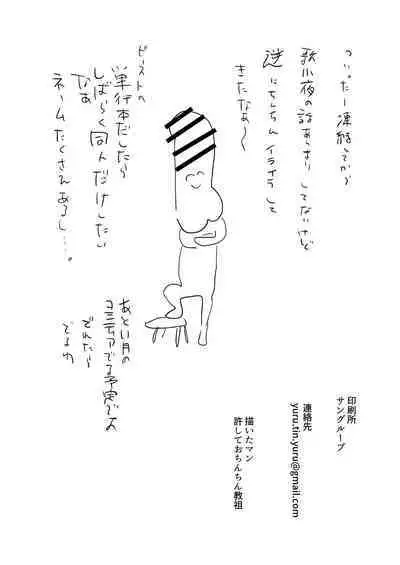 ついったー凍結してから
夜の話あんまりしてないけど
逆にちんちんイライラして
きたなぁ〜
ビーストの
単行本だしたら
しばらく同人だけしたい
なぁ
ネームたくさんあるし…。
あと11月の
コミティアでる予定です
でれたら
でるわ
印刷所
サングループ
連絡先
yuru.tin.yuru@gmail.com
描いたマン
許しておちんちん教祖